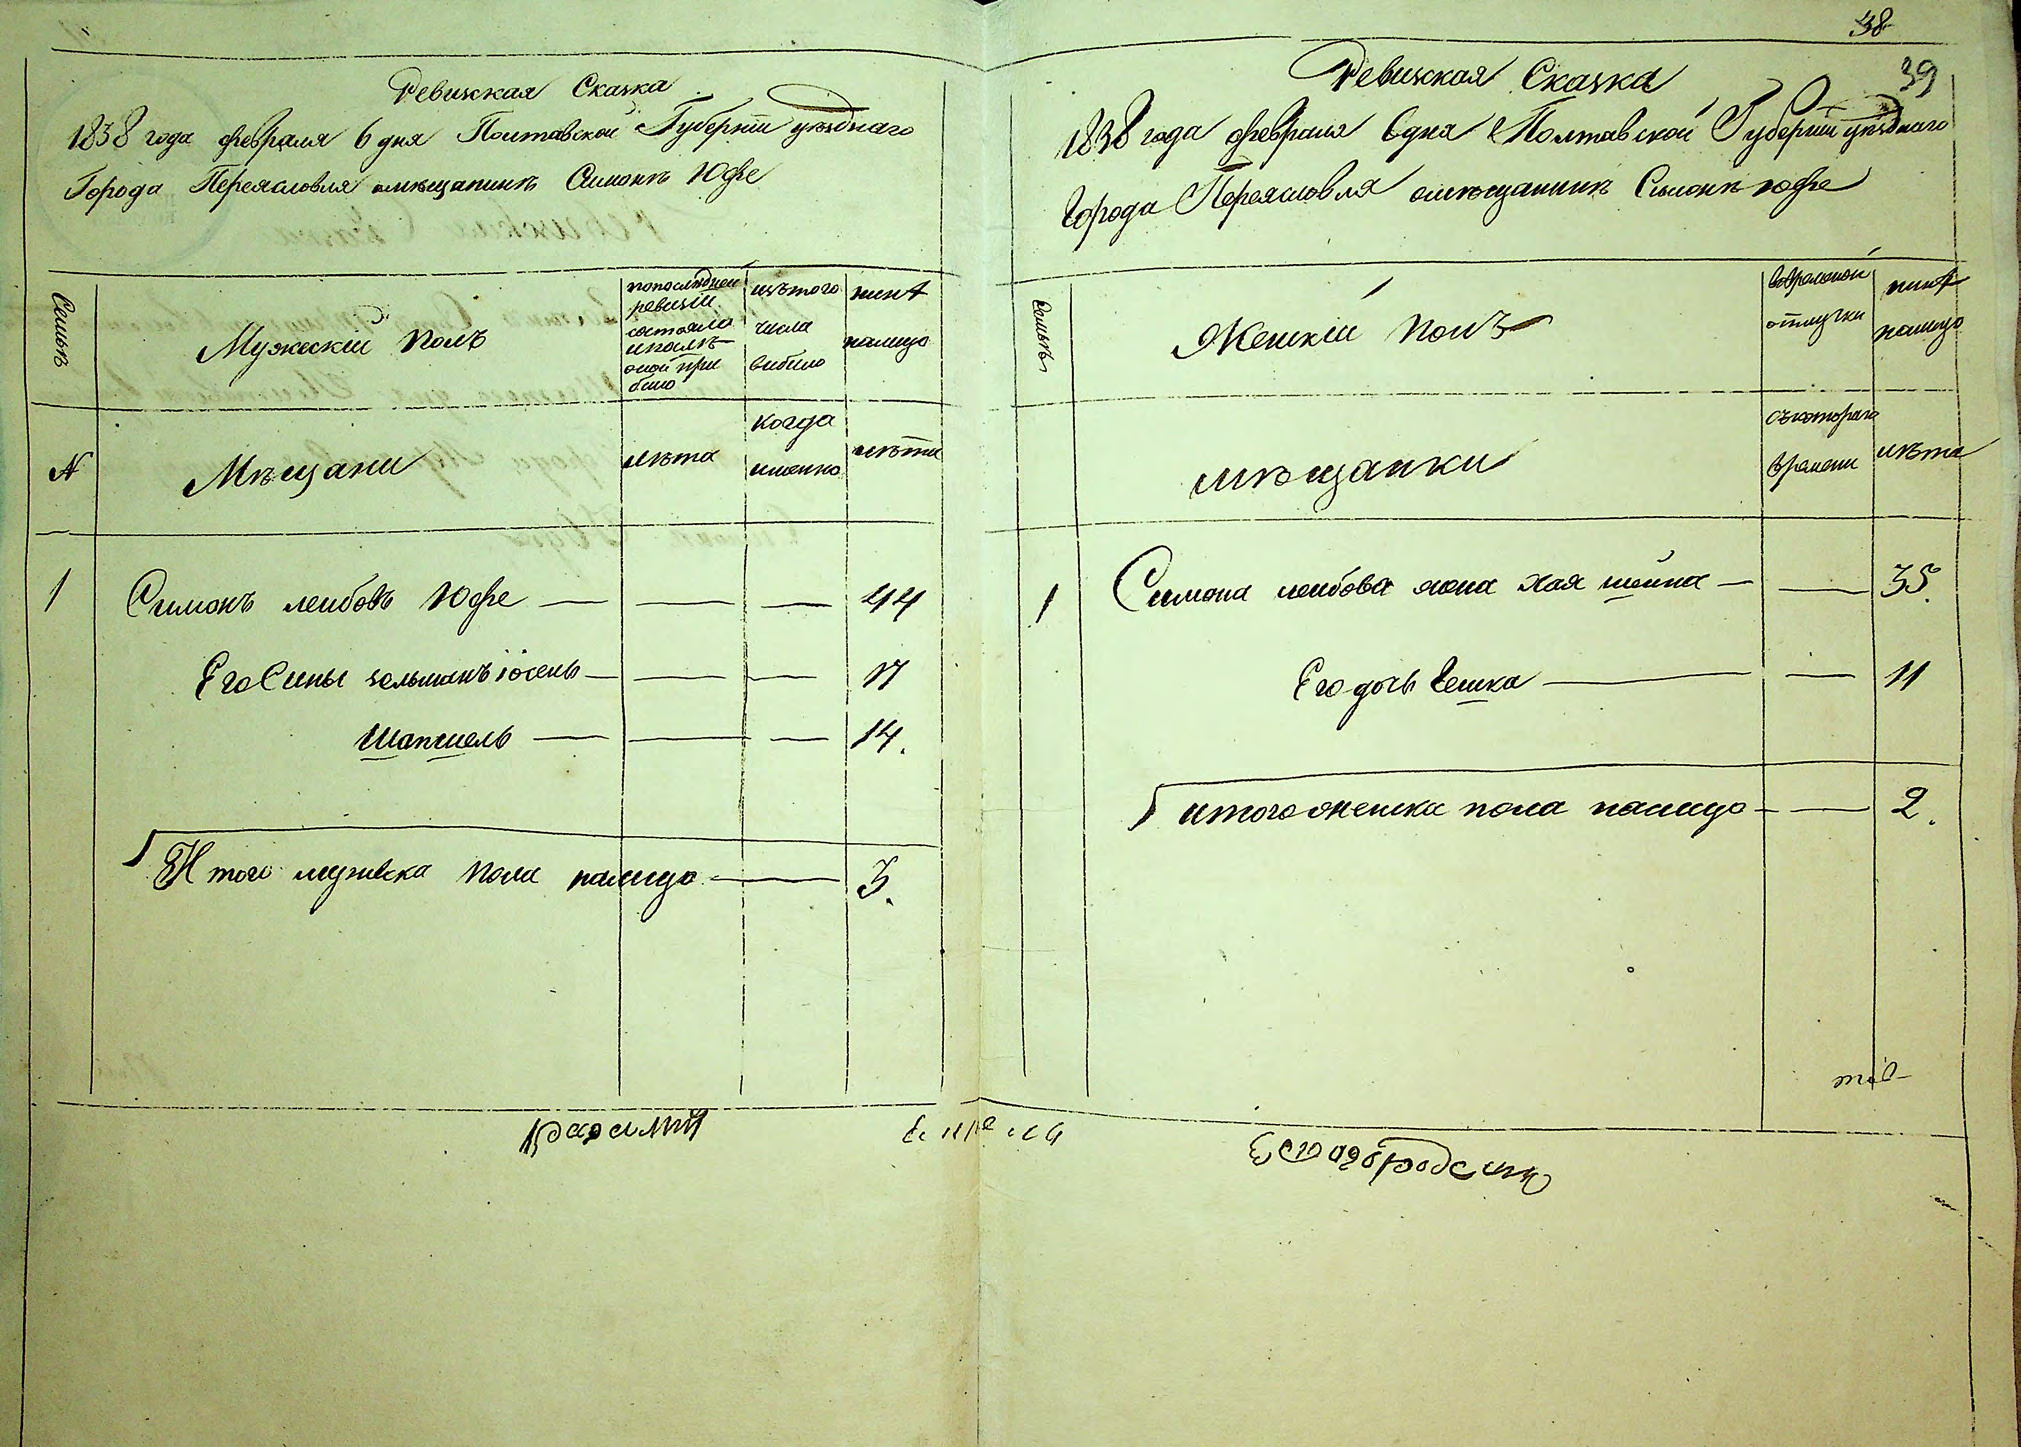 38
39
Ревизская Сказка
1838 года февраля 6 дня Полтавской Губернiи уезднаго
Города Переяславля омещанинъ Симонъ Юфе
Семьи
Мужескiй полъ
попоследней
ревизiи
состояло
ипослѣ
оной при
было
изътого
числа
выбыло
ныне
налицо
№
Мѣщани
лѣта
когда
именно
лѣта
1 Симонъ лейбовъ Юфе — — — 44
Его Сины зельманъ iосель — — — 17
шапшель — — — 14.
Итого мужеска пола налицо — 3.
Ревизская Сказка
1838 года февраля 6 дня Полтавской Губернiи уезднаго
Города Переяславля омѣщанинъ Симонъ юфе
Семьи
Женскiй полъ
вовременой
отлучки
ныне
налицо
мѣщанки
съкотораго
времени
лѣта
1 Симона лейбова жена хая шейна — — 35.
Его дочь Ешка — — 11
итого женска пола налицо — — 2.